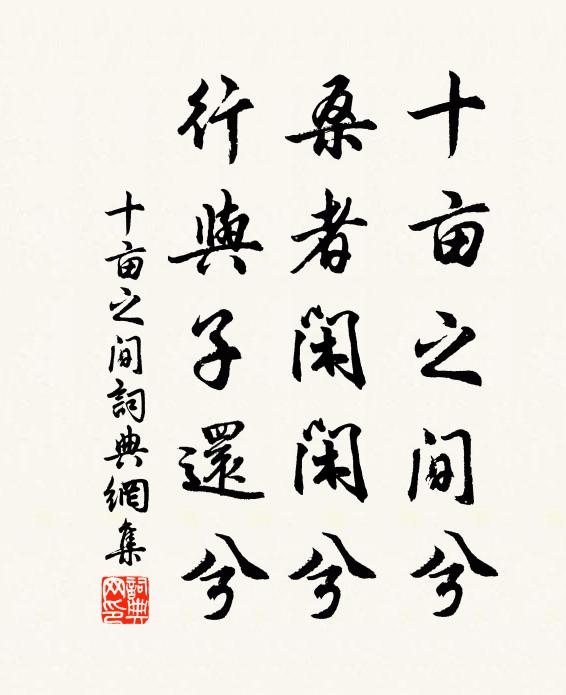 十亩之间兮
桑者闲闲兮
行與子還兮
十亩之间詞典網集
詞典網印